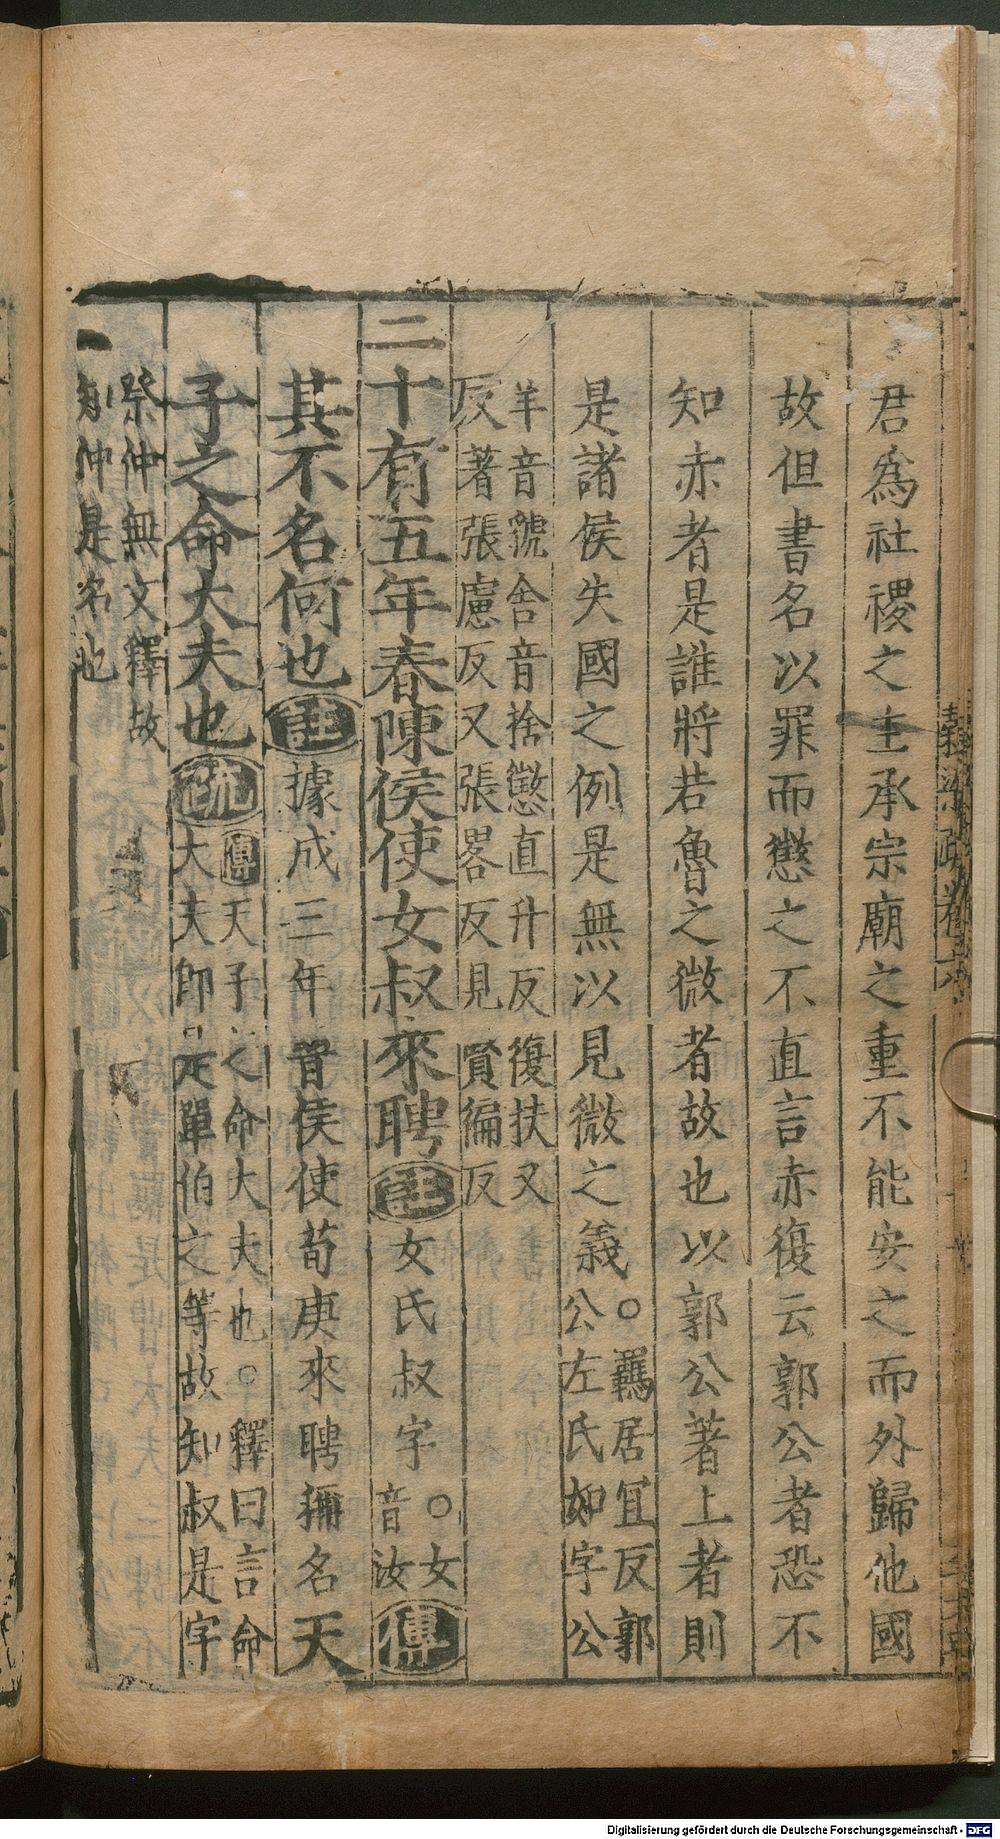 君爲社稷之主承宗廟之重不能安之而外歸他國
故但書名以罪而懲之不直言赤復云郭公者恐不
知赤者是誰將若魯之微者故也以郭公著上者則
是諸侯失國之例是無以見微之義○羈居冝反郭
公左氏如字公
羊音虢舍音捨懲直升反復扶又
反著張慮反又張畧反見賢編反
二十有五年春陳侯使女叔來聘註女氏叔字○女
音汝傳
其不名何也註據成三年晋侯使荀庚來聘稱名天
子之命大夫也疏傳天子之命大夫也○釋曰言命
大夫即是單伯之等故知叔是字
祭仲無文釋故
知仲是名也
Digitalisierung gefördert durch die Deutsche Forschungsgemeinschaft - DFG